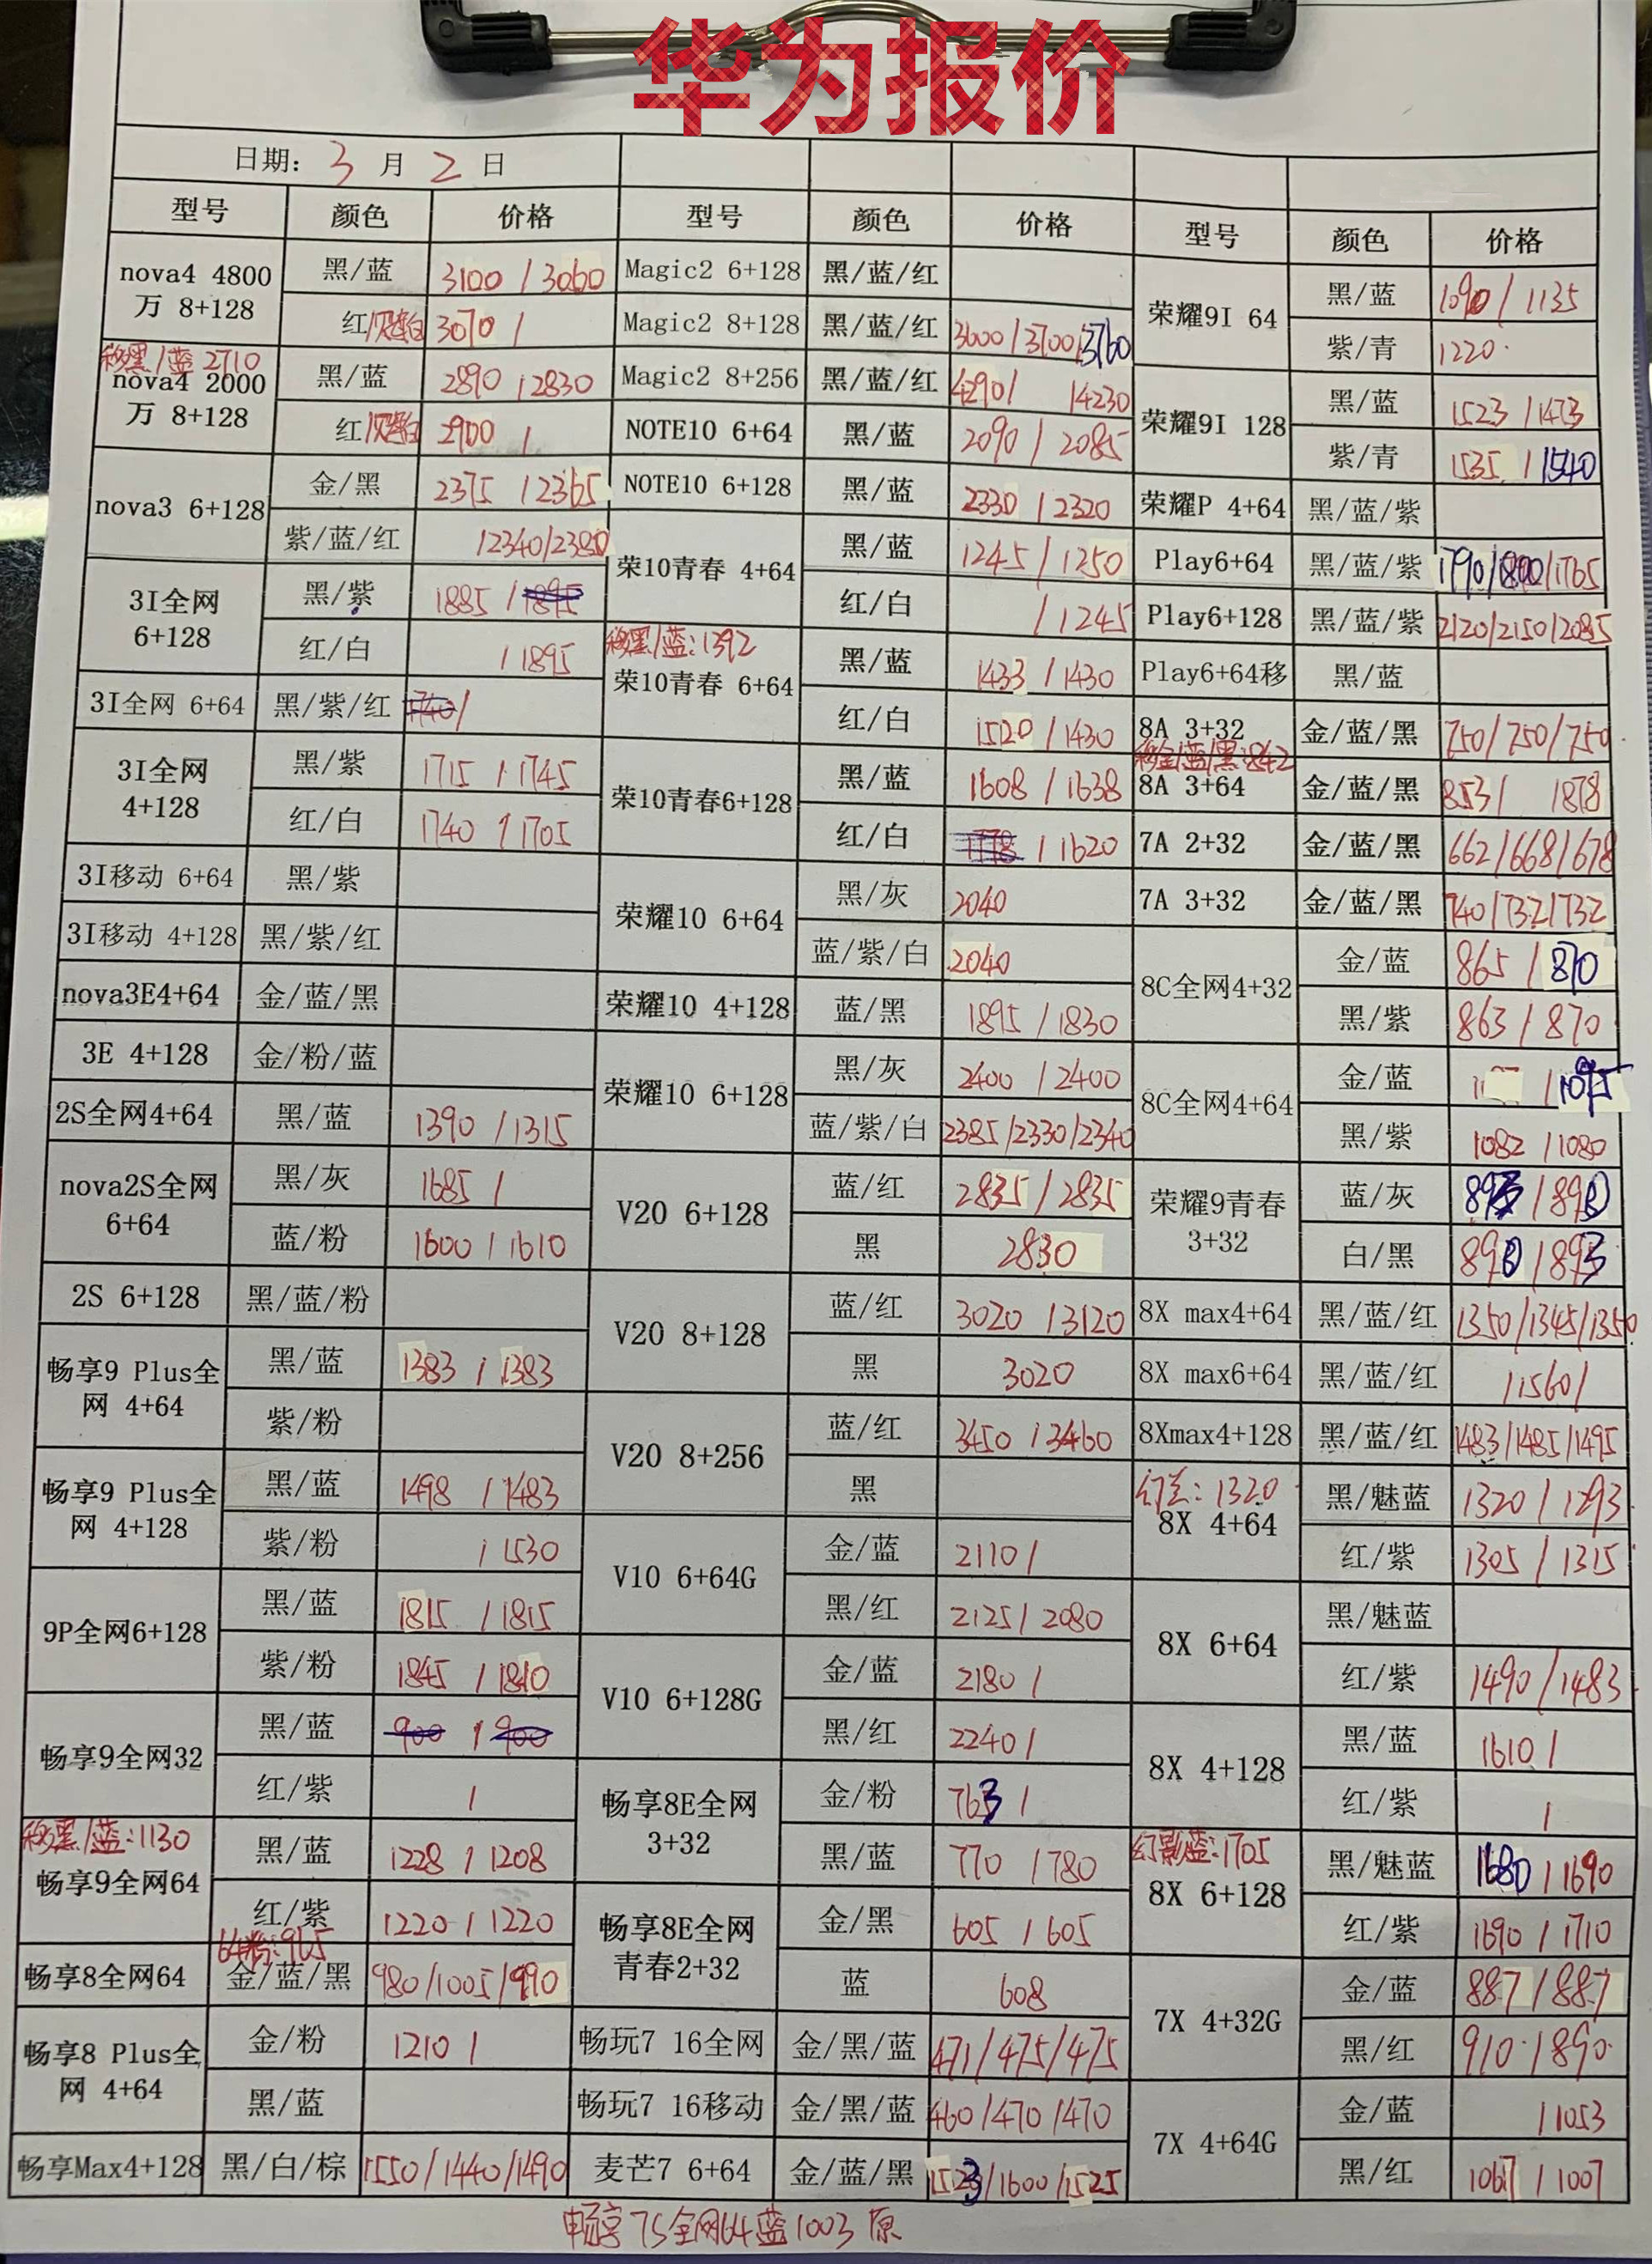 华为报价
日期: 3 月 2 日
型号 颜色 价格 型号 颜色 价格 型号 颜色 价格
nova4 4800万 8+128 黑/蓝 3100 / 3060
红/贝母白 3070 /
移黑/蓝 2710
nova4 2000万 8+128 黑/蓝 2890 / 2830
红/贝母白 2900 /
nova3 6+128 金/黑 2375 / 2365
紫/蓝/红 /2340/2380
3I全网 6+128 黑/紫 1885 / 1895
红/白 / 1895
3I全网 6+64 黑/紫/红 1740/
3I全网 4+128 黑/紫 1715 / 1745
红/白 1740 / 1705
3I移动 6+64 黑/紫
3I移动 4+128 黑/紫/红
nova3E4+64 金/蓝/黑
3E 4+128 金/粉/蓝
2S全网4+64 黑/蓝 1390 / 1315
nova2S全网 6+64 黑/灰 1685 /
蓝/粉 1600 / 1610
2S 6+128 黑/蓝/粉
畅享9 Plus全网 4+64 黑/蓝 1383 / 1383
紫/粉
畅享9 Plus全网 4+128 黑/蓝 1498 / 1483
紫/粉 / 1530
9P全网6+128 黑/蓝 1815 / 1815
紫/粉 1845 / 1810
畅享9全网32 黑/蓝 900 / 900
红/紫 /
移黑/蓝:1130
畅享9全网64 黑/蓝 1228 / 1208
红/紫 1220 / 1220
64粉:965
畅享8全网64 金/蓝/黑 980/1005/990
畅享8 Plus全网 4+64 金/粉 1210 /
黑/蓝
畅享Max4+128 黑/白/棕 1550/1440/1490
Magic2 6+128 黑/蓝/红
Magic2 8+128 黑/蓝/红 3600/3700/3760
Magic2 8+256 黑/蓝/红 4290/ /4230
NOTE10 6+64 黑/蓝 2090 / 2085
NOTE10 6+128 黑/蓝 2330 / 2320
荣10青春 4+64 黑/蓝 1245 / 1250
红/白 / 1245
移黑/蓝:1392
荣10青春 6+64 黑/蓝 1433 / 1430
红/白 1520 / 1430
荣10青春6+128 黑/蓝 1608 / 1638
红/白 / 1620
荣耀10 6+64 黑/灰 2040
蓝/紫/白 2040
荣耀10 4+128 蓝/黑 1895 / 1830
荣耀10 6+128 黑/灰 2400 / 2400
蓝/紫/白 2385/2330/2340
V20 6+128 蓝/红 2835 / 2835
黑 2830
V20 8+128 蓝/红 3020 / 3120
黑 3020
V20 8+256 蓝/红 3450 / 3460
黑
V10 6+64G 金/蓝 2110 /
黑/红 2125 / 2080
V10 6+128G 金/蓝 2180 /
黑/红 2240 /
畅享8E全网 3+32 金/粉 763 /
黑/蓝 770 / 780
畅享8E全网青春2+32 金/黑 605 / 605
蓝 608
畅玩7 16全网 金/黑/蓝 471/475/475
畅玩7 16移动 金/黑/蓝 460/470/470
麦芒7 6+64 金/蓝/黑 1523/1600/1525
荣耀9I 64 黑/蓝 1090 / 1135
紫/青 1220
荣耀9I 128 黑/蓝 1523 / 1473
紫/青 1535 / 1540
荣耀P 4+64 黑/蓝/紫
Play6+64 黑/蓝/紫 1790/1800/1765
Play6+128 黑/蓝/紫 2120/2150/2085
Play6+64移 黑/蓝
8A 3+32 金/蓝/黑 750/750/750
移金/蓝/黑:842
8A 3+64 金/蓝/黑 853/ /878
7A 2+32 金/蓝/黑 662/668/678
7A 3+32 金/蓝/黑 740/732/732
8C全网4+32 金/蓝 865 / 870
黑/紫 863 / 870
8C全网4+64 金/蓝 / 1095
黑/紫 1082 / 1080
荣耀9青春 3+32 蓝/灰 893 / 890
白/黑 890 / 893
8X max4+64 黑/蓝/红 1350/1345/1350
8X max6+64 黑/蓝/红 /1560/
8Xmax4+128 黑/蓝/红 1483/1485/1495
1320
8X 4+64 黑/魅蓝 1320 / 1293
红/紫 1305 / 1315
8X 6+64 黑/魅蓝
红/紫 1490 / 1483
8X 4+128 黑/蓝 1610 /
红/紫 /
幻影蓝:1705
8X 6+128 黑/魅蓝 1680 / 1690
红/紫 1690 / 1710
7X 4+32G 金/蓝 887 / 887
黑/红 910 / 890
7X 4+64G 金/蓝 / 1053
黑/红 1067 / 1007
畅享7S全网64蓝1003 原